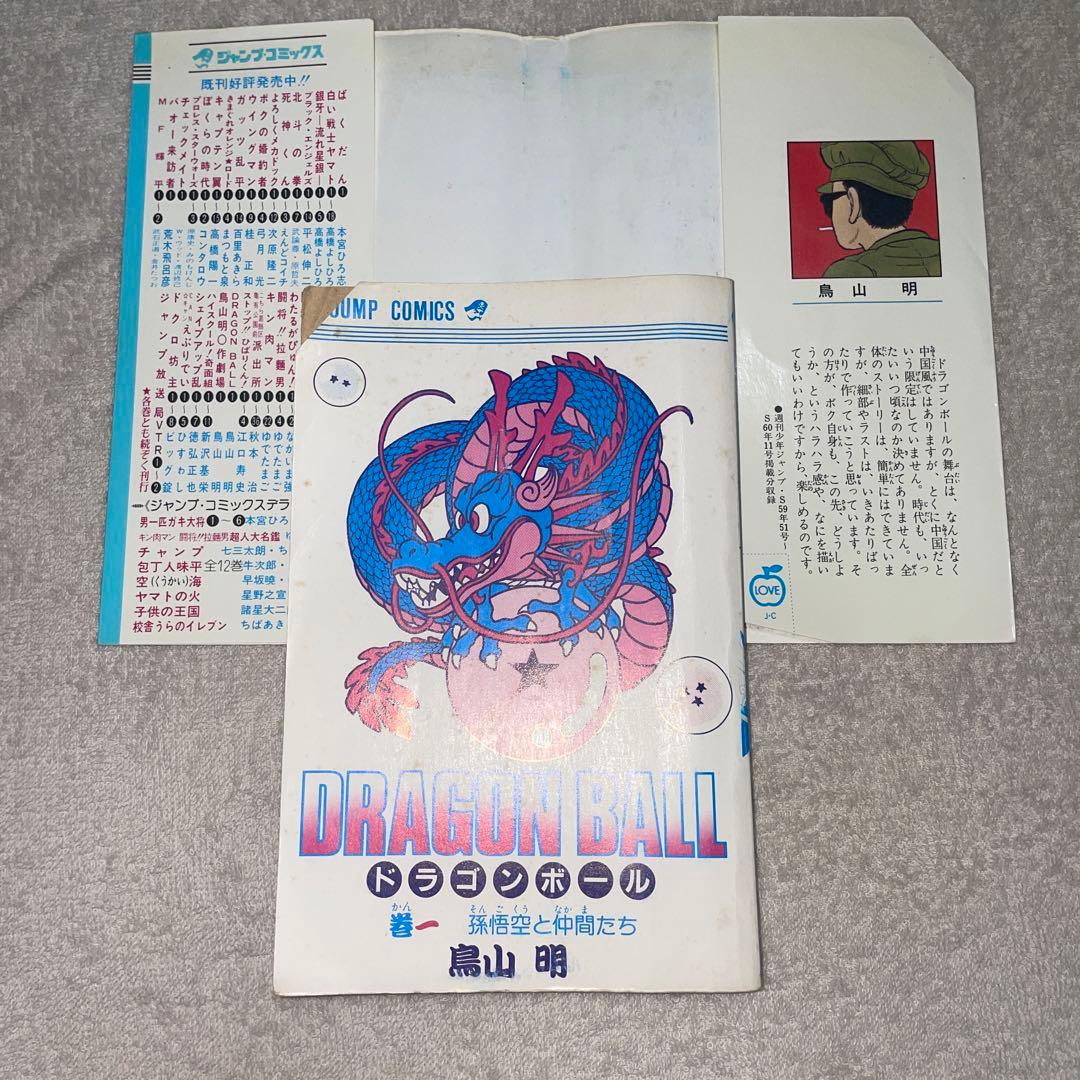 ジャンプ・コミックス
既刊好評発売中!!
ばくだん❶〜 本宮ひろ志
白い戦士ヤマト❶〜⓲ 高橋よしひろ
銀牙―流れ星銀―❶〜❺ 高橋よしひろ
ブラック・エンジェルズ❶〜⓮ 平松伸二
北斗の拳❶〜❼ 武論尊・原哲夫
死神くん❶〜❸ えんどコイチ
よろしくメカドック❶〜⓬ 次原隆二
ボクの婚約者❶〜❹ 弓月光
ウイングマン❶〜❾ 桂正和
ガッツ乱平❶〜⓮ 百里あきら
きまぐれオレンジ★ロード❶〜❹ まつもと泉
キャプテン翼❶〜⓯ 高橋陽一
ぼくらの時代❶〜❷ コンタロウ
プロレス・スターウォーズ❶〜❸ 原康史・みのもけんじ
チェックメイト❶ W・ウッド・渡辺修己
バオー来訪者❶ 荒木飛呂彦
MF輝平❶〜❷ 武石正道・金井たつお
わたるがぴゅん!
闘将!!拉麺男 ゆでたまご
キン肉マン ゆでたまご
こちら葛飾区亀有公園前派出所 秋本治
ストップ!!ひばりくん!❶〜❹ 江口寿史
DRAGON BALL❶ 鳥山明
鳥山明○作劇場❶ 鳥山明
ハイスクール!奇面組 新沢基栄
シェイプアップ乱 徳弘正也
ドクロ坊主 ビッグ錠
ジャンプ放送局VTR❶〜❷
★各巻とも続ぞく刊行
《ジャンプ・コミックスデラ
男一匹ガキ大将❶〜❻本宮ひろ
キン肉マン 闘将!!拉麺男超人大名鑑
チャンプ 七三太朗・ち
包丁人味平 全12巻牛次郎・
空(くうかい)海 早坂暁・
ヤマトの火 星野之宣
子供の王国 諸星大二
校舎うらのイレブン ちばあき
鳥山明
ドラゴンボールの舞台は、なんとなく
中国風ではありますが、とくに中国だと
いう限定はしていません。時代も、いっ
たいいつ頃なのか決めてありません。全
体のストーリーは、簡単にはできていま
すが、細部やラストは、いきあたりばっ
たりで作っていこうと思っています。そ
の方が、ボク自身も、この先、どうしよ
うか、というハラハラ感や、なにを描い
てもいいわけですから、楽しめるのです。
●週刊少年ジャンプ・S59年51号〜
S60年11号掲載分収録
LOVE
J·C
JUMP COMICS
DRAGON BALL
ドラゴンボール
巻一 孫悟空と仲間たち
鳥山明